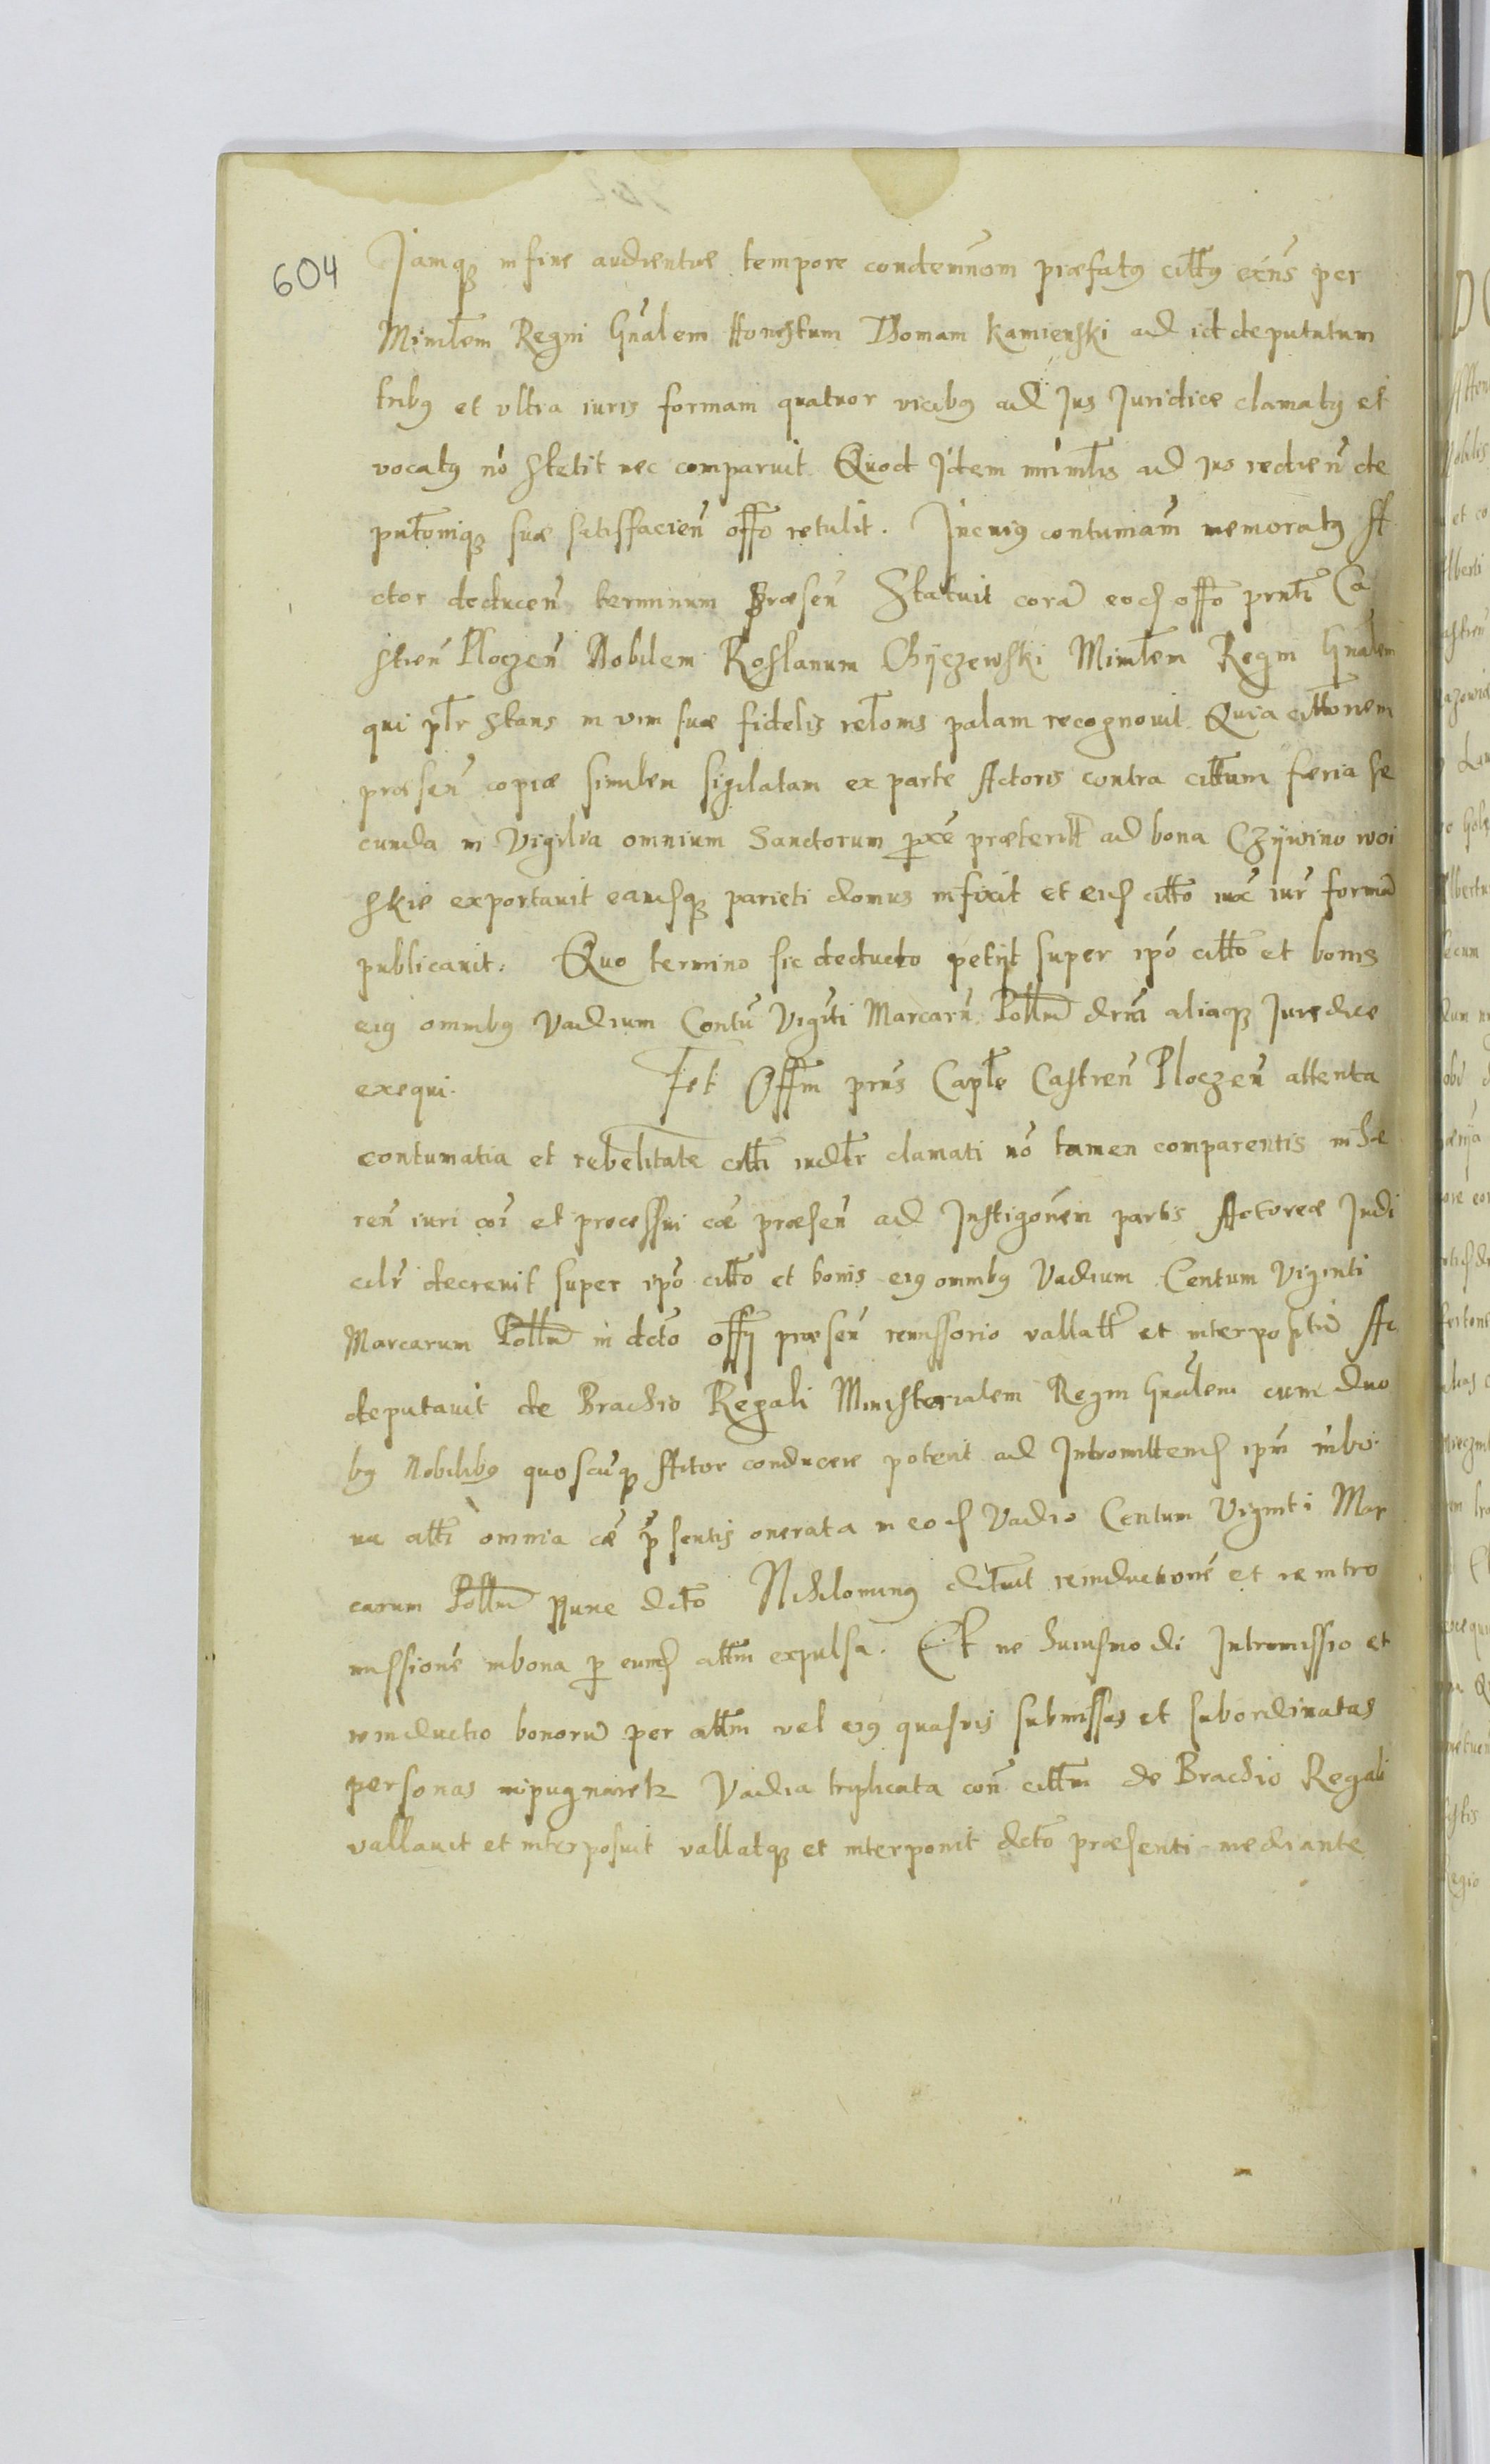 604
Jamq₃ in fine audientiæ tempore condemnōm præfatꝰ citt̄ꝰ exn̄s per
Minrl̄em Regni Gn̄alem Honestum Thomam Kamienski ad id deputatum
tribꝰ et vltra iuris formam quatuor vicibꝰ ad Jus Juridice clamatꝰ et
vocatꝰ nō stetit nec comparuit Quod Jdem minrl̄is ad ius redien̄ de
putōniq₃ suæ satisfacien̄ offō retulit. In cuiꝰ contumiām memoratꝰ A
ctor deducen̄ terminum præsen̄ Statuit corā eod offō prn̄ti Ca
stren̄ Ploczen̄ Nobilem Roslanum Chÿczewski Minrl̄em Regni Gn̄alem
qui pl̄r stans in vim suæ fidelis rel̄oms palam recognouit Quia citt̄onem
præsen̄ copiæ similem sigilatam ex parte Actoris contra citt̄um færia se
cunda in Vigilia omnium Sanctorum p̱xē præterit̄t ad bona Czÿwino woi
skie exportauit eamdq₃ parieti domus infixit et eid citt̄o iuxē iur̄ formā
publicauit. Quo termino sic deducto petÿt super ipō citt̄o et bonis
eiꝰ omnibꝰ Vadium Centū Vigīti Marcarū Poll̄m drn̄i aliaq₃ Juredice
exequi. Et Offm̄ prn̄s Capl̄e Castren̄ Ploczen̄ attenta
contumatia et rebelitate citt̄i iudl̄r clamati nō tamen comparentis inhæ
ren̄ iuri cōi et processui cǣ præsen̄ ad Instigōnem partis Actoreæ Judi
cilr̄ decreuit super ipō citt̄o et bonis eiꝰ omnibꝰ Vadium Centum Viginti
Marcarum Poll̄m in dctō offÿ præsen̄ remissorio vallatt̄ et interpositū Ac
deputauit de Brachio Regali Ministerialem Regni Gn̄alem cum duo
bꝰ Nobilibꝰ quoscūq₃ Actor conducere poterit ad Intromittend ipm̄ in bo
na citt̄i omnia cǣ p̄sentis onerata in eod Vadio Centum Viginti Mar
carum Poll̄m nunc dctō Nihilominꝰ reinductionē et reintro
missionē in bona p̱ eumd citt̄m expulsa. Et ne huiusmodi Intromissio et
reinductio bonorū per citt̄m vel eiꝰ quasuis submissas et subordinatas
personas inpugnaretr Vadia triplicata con̄ citt̄m de Brachio Regali
vallauit et interposuit vallatq₃ et interponit dctō præsenti mediante